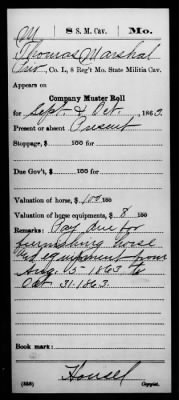 M 8 S. M. Cav. Mo.
Thomas Marshal
Pvt, Co. L, 8 Reg't Mo. State Militia Cav.
Appears on
Company Muster Roll
for Sept. & Oct., 1863.
Present or absent Present
Stoppage, $ 100 for
Due Gov't, $ 100 for
Valuation of horse, $ 100
Valuation of horse equipments, $ 8 100
Remarks: Pay due for
furnishing horse
and equipment from
Aug. 15 - 1863 to
Oct 31 - 1863.
Book mark:
Housel
(858) Copyist.